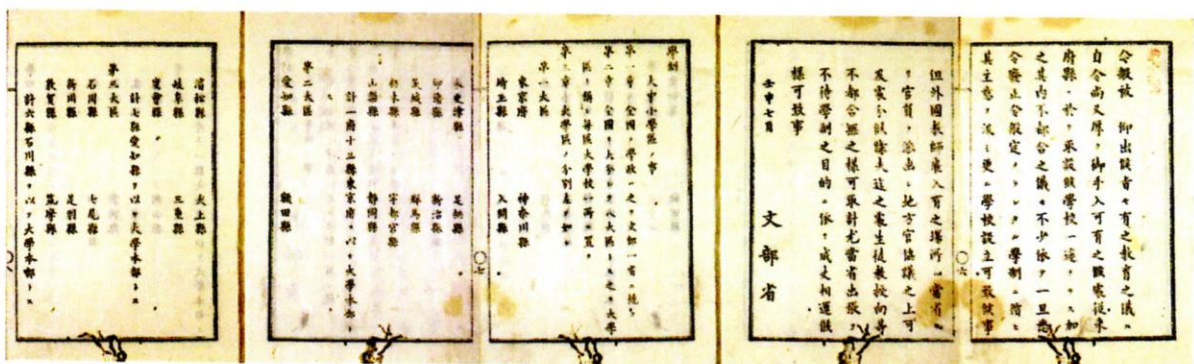 今般被 仰出候旨モ有之教育之儀ハ
自今尚又厚ク御手入可有之候處從來
府縣ニ於テ取設候學校一途ナラス加
之其内不都合之儀モ不少依テ一旦悉
令廢止今般定メラレタル學制ニ循ヒ
其主意ヲ汲ミ更ニ學校設立可致候事
六
但外國教師雇入有之場所ハ當省ヨ
リ官員ヲ派出シ地方官協議之上可
及處分候條夫迄之處生徒教授向等
不都合無之樣可取計尤當省出張ヲ
不待學制之目的ニ依リ成丈相運候
樣可致事
壬申七月
文部省
學制
大中小學區ノ事
第一章 全國ノ學政ハ之ヲ文部一省ニ統フ
第二章 全國ヲ大分シテ八大區トス之ヲ大學
區ト稱シ每區大學校一所ヲ置ク
第三章 大學區ノ分別左ノ如シ
第一大區
東京府 神奈川縣
埼玉縣 入間縣
七
木更津縣 足柄縣
印旛縣 新治縣
茨城縣 群馬縣
栃木縣 宇都宮縣
山梨縣 靜岡縣
計一府十三縣東京府ヲ以テ大學本部トス
第二大區
愛知縣 額田縣
濱松縣 犬上縣
岐阜縣 三重縣
度會縣
計七縣愛知縣ヲ以テ大學本部トス
第三大區
石川縣 七尾縣
新川縣 足羽縣
敦賀縣 筑摩縣
計六縣石川縣ヲ以テ大學本部トス
八